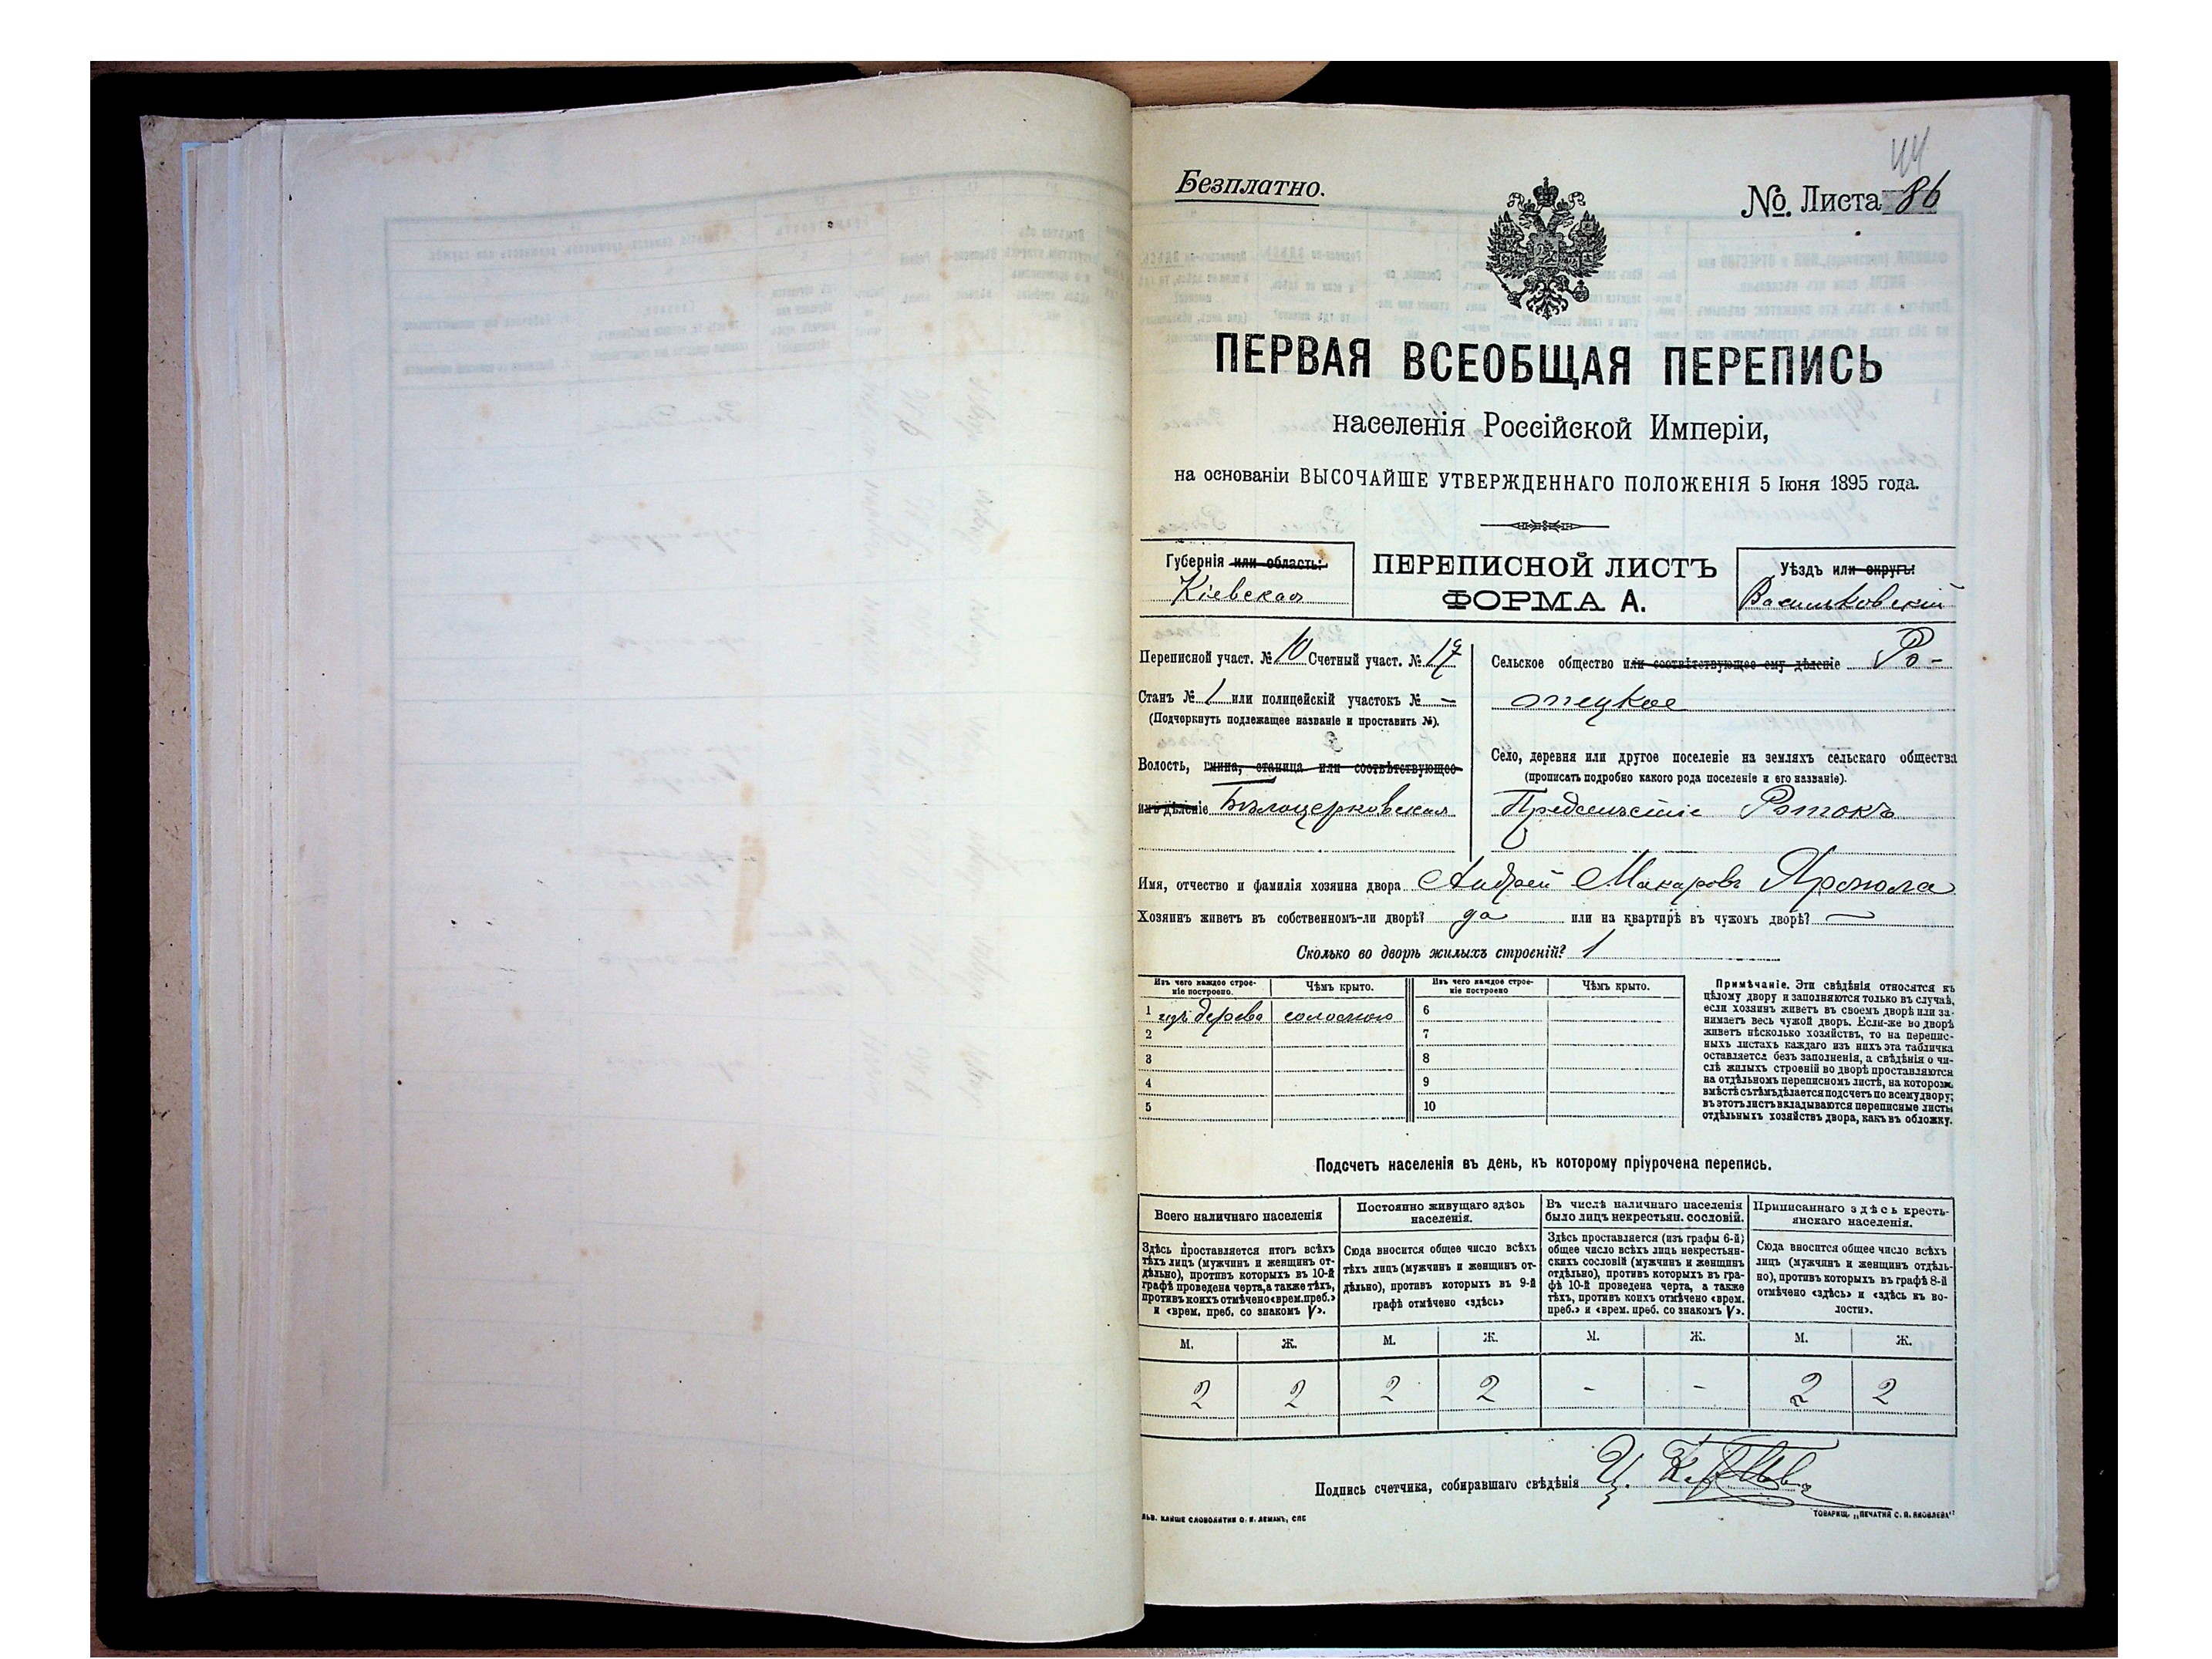 44
Безплатно.
№. Листа 86
ПЕРВАЯ ВСЕОБЩАЯ ПЕРЕПИСЬ
населенія Россійской Имперіи,
на основаніи ВЫСОЧАЙШЕ УТВЕРЖДЕННАГО ПОЛОЖЕНІЯ 5 Іюня 1895 года.
Губернія или область:
Кіевская
ПЕРЕПИСНОЙ ЛИСТЪ
ФОРМА А.
Уѣздъ или округъ:
Васильковскій
Переписной участ. № 10 Счетный участ. № 19
Станъ № 1 или полицейскій участокъ № —
(Подчеркнуть подлежащее названіе и проставить №).
Волость, гмина, станица или соотвѣтствующее
имъ дѣленіе Бѣлоцерковская
Сельское общество или соотвѣтствующее ему дѣленіе Ро-
токское
Село, деревня или другое поселеніе на земляхъ сельскаго общества
(прописать подробно какого рода поселеніе и его названіе).
Предмѣстіе Ротокъ
Имя, отчество и фамилія хозяина двора Андрей Макаровъ
Хозяинъ живетъ въ собственномъ-ли дворѣ? да или на квартирѣ въ чужомъ дворѣ? —
Сколько во дворѣ жилыхъ строеній? 1
Изъ чего каждое строе-
ніе построено.
Чѣмъ крыто.
Изъ чего каждое строе-
ніе построено
Чѣмъ крыто.
1 изъ дерева соломою 6
2 7
3 8
4 9
5 10
Примѣчаніе. Эти свѣдѣнія относятся къ
цѣлому двору и заполняются только въ случаѣ,
если хозяинъ живетъ въ своемъ дворѣ или за-
нимаетъ весь чужой дворъ. Если-же во дворѣ
живетъ нѣсколько хозяйствъ, то на перепис-
ныхъ листахъ каждаго изъ нихъ эта табличка
оставляется безъ заполненія, а свѣдѣнія о чи-
слѣ жилыхъ строеній во дворѣ проставляются
на отдѣльномъ переписномъ листѣ, на которомъ
вмѣстѣ съ тѣмъ дѣлается подсчетъ по всему двору;
въ этотъ листъ вкладываются переписные листы
отдѣльныхъ хозяйствъ двора, какъ въ обложку.
Подсчетъ населенія въ день, къ которому пріурочена перепись.
Всего наличнаго населенія
Здѣсь проставляется итогъ всѣхъ
тѣхъ лицъ (мужчинъ и женщинъ от-
дѣльно), противъ которыхъ въ 10-й
графѣ проведена черта, а также тѣхъ,
противъ коихъ отмѣчено «врем. преб.»
и «врем. преб. со знакомъ V».
Постоянно живущаго здѣсь
населенія.
Сюда вносится общее число всѣхъ
тѣхъ лицъ (мужчинъ и женщинъ от-
дѣльно), противъ которыхъ въ 9-й
графѣ отмѣчено «здѣсь»
Въ числѣ наличнаго населенія
было лицъ некрестьян. сословій.
Здѣсь проставляется (изъ графы 6-й)
общее число всѣхъ лицъ некрестьян-
скихъ сословій (мужчинъ и женщинъ
отдѣльно), противъ которыхъ въ гра-
фѣ 10-й проведена черта, а также
тѣхъ, противъ коихъ отмѣчено «врем.
преб.» и «врем. преб. со знакомъ V».
Приписаннаго здѣсь кресть-
янскаго населенія.
Сюда вносится общее число всѣхъ
лицъ (мужчинъ и женщинъ отдѣль-
но), противъ которыхъ въ графѣ 8-й
отмѣчено «здѣсь» и «здѣсь къ во-
лости».
М. Ж. М. Ж. М. Ж. М. Ж.
2 2 2 2 - - 2 2
Подпись счетчика, собиравшаго свѣдѣнія
КЛИШЕ СЛОВОЛИТНИ О. И. ЛЕМАНЪ, СПБ
ТОВАРИЩ. „ПЕЧАТНЯ С. П. ЯКОВЛЕВА“